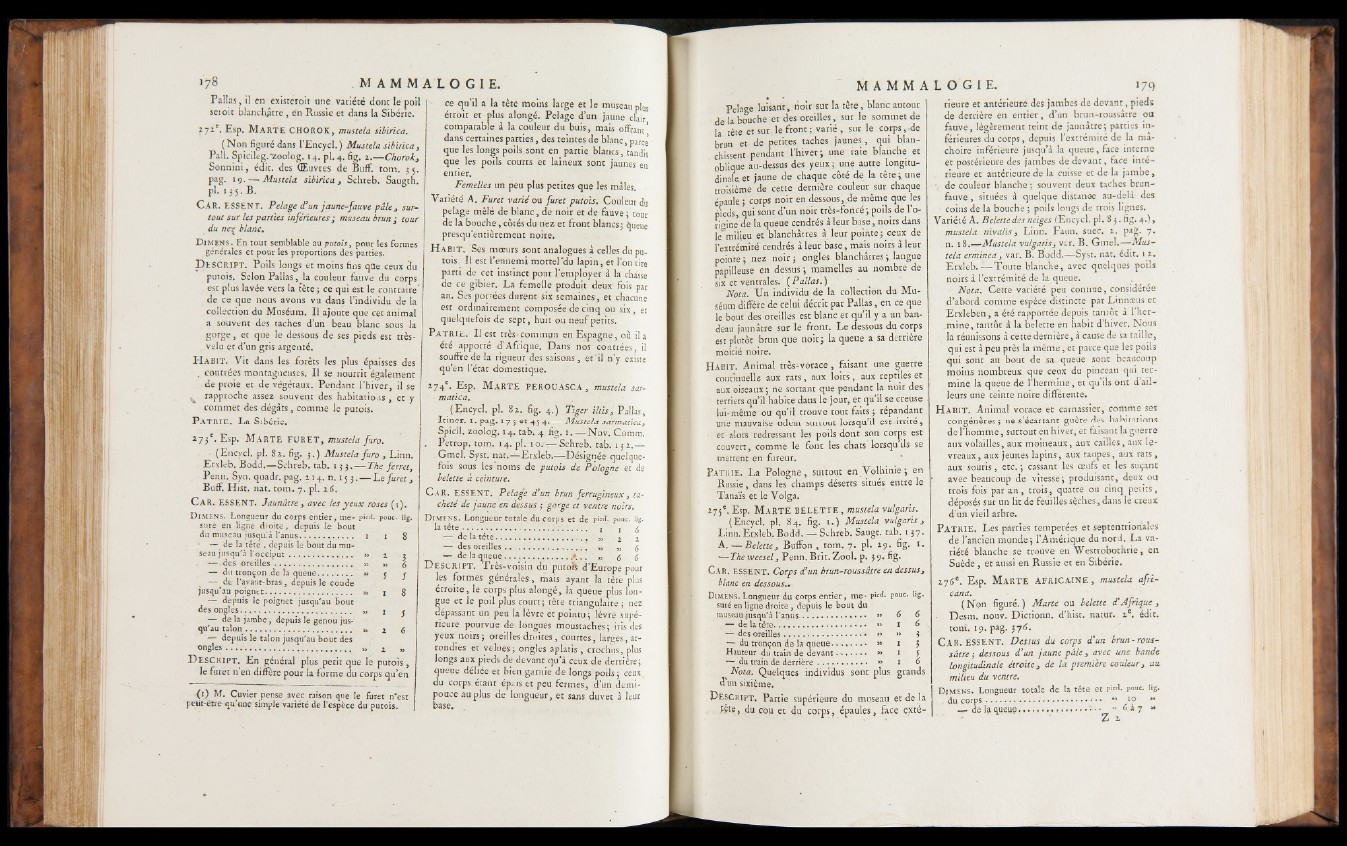 178
MAMMALOGIE.
Pallas, il en existeroit une variété dont le poil
seroit blanchâtre, en Russie et dans la Sibérie.
272e. Esp. MARTE CHOROK, mustela sibirica.
(Non figuré dans l'Encycl.) Mustela sibirica,
Pall. Spicileg. zoolog. 14. pl. 4. fig. 2.—Chorok,
Sonnini, édit. des Œuvres de Buff. tom. 35.
pag. 19.— Mustela sibirica, Schreb. Saugth.
pl. 135. B.
CAR. ESSENT. Pelage d'un jaune-fauve pâle, sur-
tout sur les parties inférieures; museau brun; tour
du nez blanc.
DIMENS. En tout semblable au putois, pour les formes
générales et pour les proportions des parties.
DESCRIPT. Poils longs et moins fins que ceux du
putois. Selon Pallas, la couleur fauve du corps
est plus lavée vers la tête; ce qui est le contraire
de ce que nous avons vu dans l'individu de la
collection du Muséum. Il ajoute que cet animal
a souvent des taches d'un beau blanc sous la
gorge, et que le dessous de ses pieds est très-
velu et d'un gris argenté.
HABIT. Vit dans les forêts les plus épaisses des
contrées montagneuses. Il se nourrit également
de proie et de végétaux. Pendant l'hiver, il se
rapproche assez souvent des habitations, et y
commet des dégâts, comme le putois.
PATRIE. La Sibérie.
273e. Esp. MARTE FURET, mustela furo.
(Encycl. pl. 82. fig. 3.) Mustela furo, Linn.
Erxleb. Bodd.—Schreb. tab. 133.—The ferret,
Penn. Syn. quadr. pag. 214. n. 153.—Le furet,
Buff. Hist. nat. tom. 7. pl. 26.
CAR. ESSENT. Jaunâtre, avec les yeux roses (1).
DIMENS. Longueur du corps entier, me- pied. pouc. lig.
suré en ligne droite, depuis le bout
du museau jusqu'à l'anus............ 1 1 8
— de la tête, depuis le bout du mu-
seau jusqu'à l'occiput............... » 2 3
— des oreilles................. » » 6
— du tronçon de la queue........ » 5 5
— de l'avant-bras, depuis le coude
jusqu'au poignet.................... » 1 8
— depuis le poignet jusqu'au bout
des ongles.......................... » 1 5
— de la jambe, depuis le genou jus-
qu'au talon......................... » 2 6
— depuis le talon jusqu'au bout des
ongles.............................. » 2 »
DESCRIPT. En général plus petit que le putois,
le furet n'en diffère pour la forme du corps qu'en
(1) M. Cuvier pense avec raison que le furet n'est
peut-être qu'une simple variété de l'espèce du putois.
ce qu'il a la tête moins large et le museau plus
étroit et plus alongé. Pelage d'un jaune clair,
comparable à la couleur du buis, mais offrant,
dans certaines parties, des teintes de blanc, parce
que les longs poils sont en partie blancs, tandis
que les poils courts et laineux sont jaunes en
entier.
Femelles un peu plus petites que les mâles.
Variété A. Furet varié ou furet putois. Couleur du
pelage mêlé de blanc, de noir et de fauve; tour
de la bouche, côtés du nez et front blancs; queue
presqu'entièrement noire.
HABIT. Ses mœurs sont analogues à celles du pu-
tois. Il est l'ennemi mortel du lapin, et l'on tire
parti de cet instinct pour l'employer à la chasse
de ce gibier. La femelle produit deux fois par
an. Ses portées durent six semaines, et chacune
est ordinairement composée de cinq ou six, et
quelquefois de sept, huit ou neuf petits.
PATRIE. Il est très-commun en Espagne, où il a
été apporté d'Afrique. Dans nos contrées, il
souffre de la rigueur des saisons, et il n'y existe
qu'en l'état domestique.
274e. Esp. MARTE PEROUASCA, mustela sar-
matica.
(Encycl. pl. 82. fig. 4.) Tiger iltis, Pallas,
Itiner. 1. pag. 175 et 454.— Mustela sarmatica,
Spicil. zoolog. 14. tab. 4 fig. 1.—Nov. Comm.
Petrop. tom. 14. pl. 10.—Schreb. tab. 132.—
Gmel. Syst. nat.—Erxleb.—Désignée quelque-
fois sous les noms de putois de Pologne et de
belette à ceinture.
CAR. ESSENT. Pelage d'un brun ferrugineux, ta-
cheté de jaune en dessus; gorge et ventre noirs.
DIMENS. Longueur totale du corps et de pied. pouc. lig.
la tête............................. 1 1 6
— de la tête.................... » 2 2
— des oreilles.................. » » 6
— de la queue................... » 6 6
DESCRIPT. Très-voisin du putois d'Europe pour
les formes générales, mais ayant la tête plus
étroite, le corps plus alongé, la queue plus lon-
gue et le poil plus court; tête triangulaire; nez
dépassant un peu la lèvre et pointu; lèvre supé-
rieure pourvue de longues moustaches; iris des
yeux noirs; oreilles droites, courtes, larges, ar-
rondies et velues; ongles aplatis, crochus, plus
longs aux pieds de devant qu'à ceux de derrière;
queue déliée et bien garnie de longs poils; ceux
du corps étant épais et peu fermes, d'un demi-
pouce au plus de longueur, et sans duvet à leur
base.
MAMMALOGIE.
179
Pelage luisant, noir sur la tête, blanc autour
de la bouche et des oreilles, sur le sommet de
la tête et sur le front; varié, sur le corps, de
brun et de petites taches jaunes, qui blan-
chissent pendant l'hiver; une raie blanche et
oblique au-dessus des yeux; une autre longitu-
dinale et jaune de chaque côté de la tête; une
troisième de cette dernière couleur sur chaque
épaule; corps noir en dessous, de même que les
pieds, qui sont d'un noir très-foncé; poils de l'o-
rigine de la queue cendrés à leur base, noirs dans
le milieu et blanchâtres à leur pointe; ceux de
l'extrémité cendrés à leur base, mais noirs à leur
pointe; nez noir; ongles blanchâtres; langue
papilleuse en dessus; mamelles au nombre de
six et ventrales. (Pallas.)
Nota. Un individu de la collection du Mu-
séum diffère de celui décrit par Pallas, en ce que
le bout des oreilles est blanc et qu'il y a un ban-
deau jaunâtre sur le front. Le dessous du corps
est plutôt brun que noir; la queue a sa dernière
moitié noire.
HABIT. Animal très-vorace, faisant une guerre
continuelle aux rats, aux loirs, aux reptiles et
aux oiseaux; ne sortant que pendant la nuit des
terriers qu'il habite dans le jour, et qu'il se creuse
lui-même ou qu'il trouve tout faits; répandant
une mauvaise odeur surtout lorsqu'il est irrité,
et alors redressant les poils dont son corps est
couvert, comme le font les chats lorsqu'ils se
mettent en fureur.
PATRIE. La Pologne, surtout en Volhinie; en
Russie, dans les champs déserts situés entre le
Tanaïs et le Volga.
275e. Esp. MARTE BELETTE, mustela vulgaris.
(Encycl. pl. 84. fig. 1.) Mustela vulgaris,
Linn. Erxleb. Bodd. — Schreb. Saugt. tab. 137.
A. — Belette, Buffon, tom. 7. pl. 29. fig. 1.
—The weesel, Penn. Brit. Zool. p. 39. fig.
CAR. ESSENT. Corps d'un brun-roussâtre en dessus,
blanc en dessous.
DIMENS. Longueur du corps entier, me- pied. pouc. lig.
suré en ligne droite, depuis le bout du
museau jusqu'à l'anus............... » 6 6
— de la tête.................... » 1 6
— des oreilles.................. » » 3
— du tronçon de la queue........ » 1 3
Hauteur du train de devant....... » 1 5
— du train de derrière.......... » 1 6
Nota. Quelques individus sont plus grands
d'un sixième.
DESCRIPT. Partie supérieure du museau et de la
tête, du cou et du corps, épaules, face exté-
rieure et antérieure des jambes de devant, pieds
de derrière en entier, d'un brun-roussâtre ou
fauve, légèrement teint de jaunâtre; parties in-
férieures du corps, depuis l'extrémité de la mâ-
choire inférieure jusqu'à la queue, face interne
et postérieure des jambes de devant, face inté-
rieure et antérieure de la cuisse et de la jambe,
de couleur blanche; souvent deux taches brun-
fauve, situées à quelque distance au-delà des
coins de la bouche; poils longs de trois lignes.
Variété A. Belette des neiges (Encycl. pl. 83. fig. 4.),
mustela nivalis, Linn. Faun. suec. 2. pag. 7.
n. 18.—Mustela vulgaris, var. B. Gmel.—Mus-
tela erminea, var. B. Bodd.—Syst. nat. édit. 12.
Erxleb.—Toute blanche, avec quelques poils
noirs à l'extrémité de la queue.
Nota. Cette variété peu connue, considérée
d'abord comme espèce distincte par Linnæus et
Erxleben, a été rapportée depuis tantôt à l'her-
mine, tantôt à la belette en habit d'hiver. Nous
la réunissons à cette dernière, à cause de sa taille,
qui est à peu près la même, et parce que les poils
qui sont au bout de sa queue sont beaucoup
moins nombreux que ceux du pinceau qui ter-
mine la queue de l'hermine, et qu'ils ont d'ail-
leurs une teinte noire différente.
HABIT. Animal vorace et carnassier, comme ses
congénères; ne s'écartant guère des habitations
de l'homme, surtout en hiver, et faisant la guerre
aux volailles, aux moineaux, aux cailles, aux le-
vreaux, aux jeunes lapins, aux taupes, aux rats,
aux souris, etc.; cassant les œufs et les suçant
avec beaucoup de vitesse; produisant, deux ou
trois fois par an, trois, quatre ou cinq petits,
déposés sur un lit de feuilles sèches, dans le creux
d'un vieil arbre.
PATRIE. Les parties tempérées et septentrionales
de l'ancien monde; l'Amérique du nord. La va-
riété blanche se trouve en Westrobothrie, en
Suède, et aussi en Russie et en Sibérie.
276e. Esp. MARTE AFRICAINE, mustela afri-
cana.
(Non figuré.) Marte ou belette d'Afrique,
Desm. nouv. Dictionn. d'hist. natur. 2e. édit.
tom. 19. pag. 376.
CAR. ESSENT. Dessus du corps d'un brun-rous-
sâtre; dessous d'un jaune pâle, avec une bande
longitudinale étroite, de la première couleur, au
milieu du ventre.
DIMENS. Longueur totale de la tête et pied. pouc. lig.
du corps............................ » 10 »
— de la queue................... » 6 à 7 »
Z 2